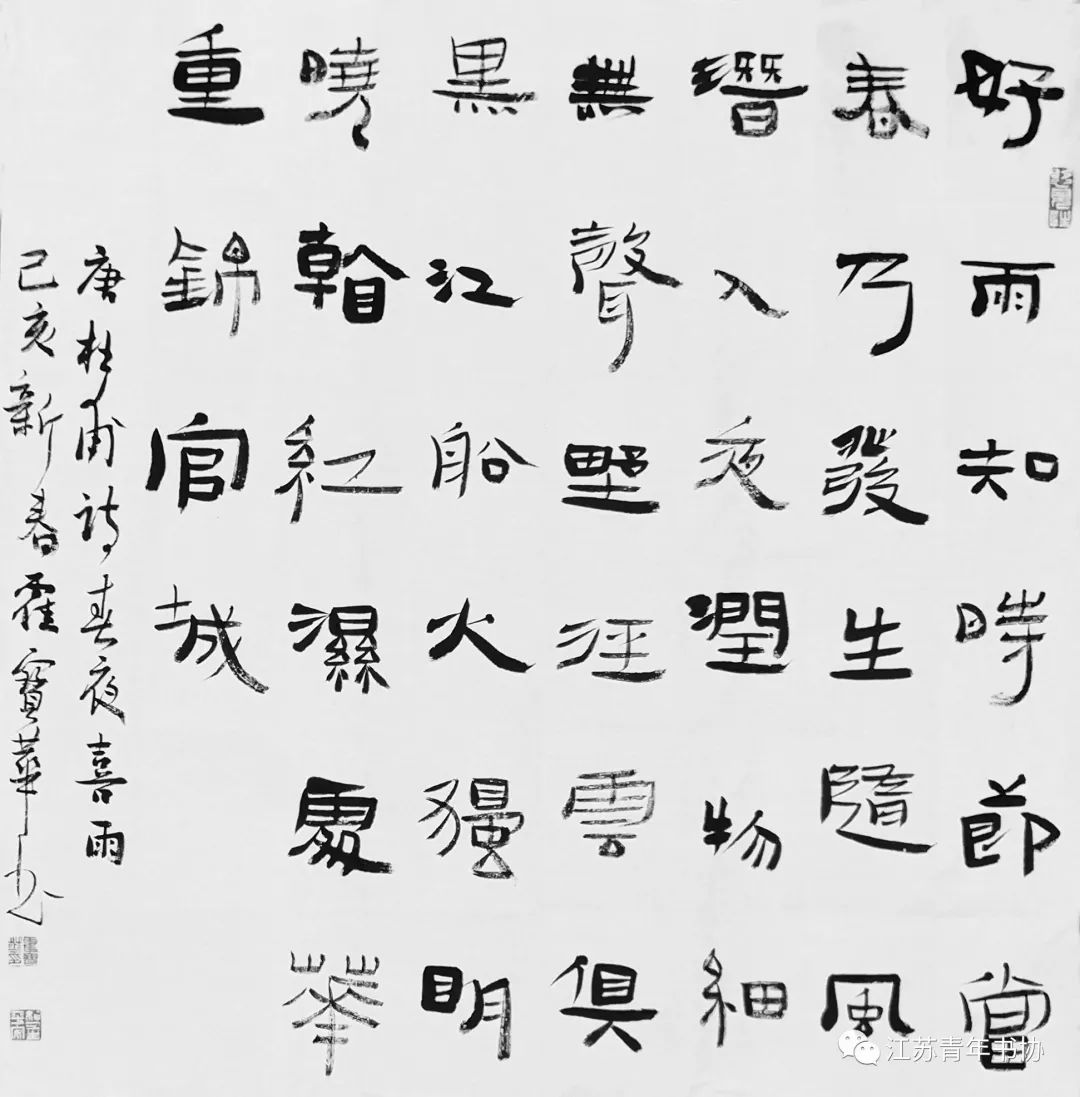 好雨知時節當
春乃發生隨風
潛入夜潤物細
無聲野徑雲俱
黑江船火獨明
曉看紅濕處華
重錦官城
唐杜甫詩春夜喜雨
己亥新春霍寶華书
江苏青年书协